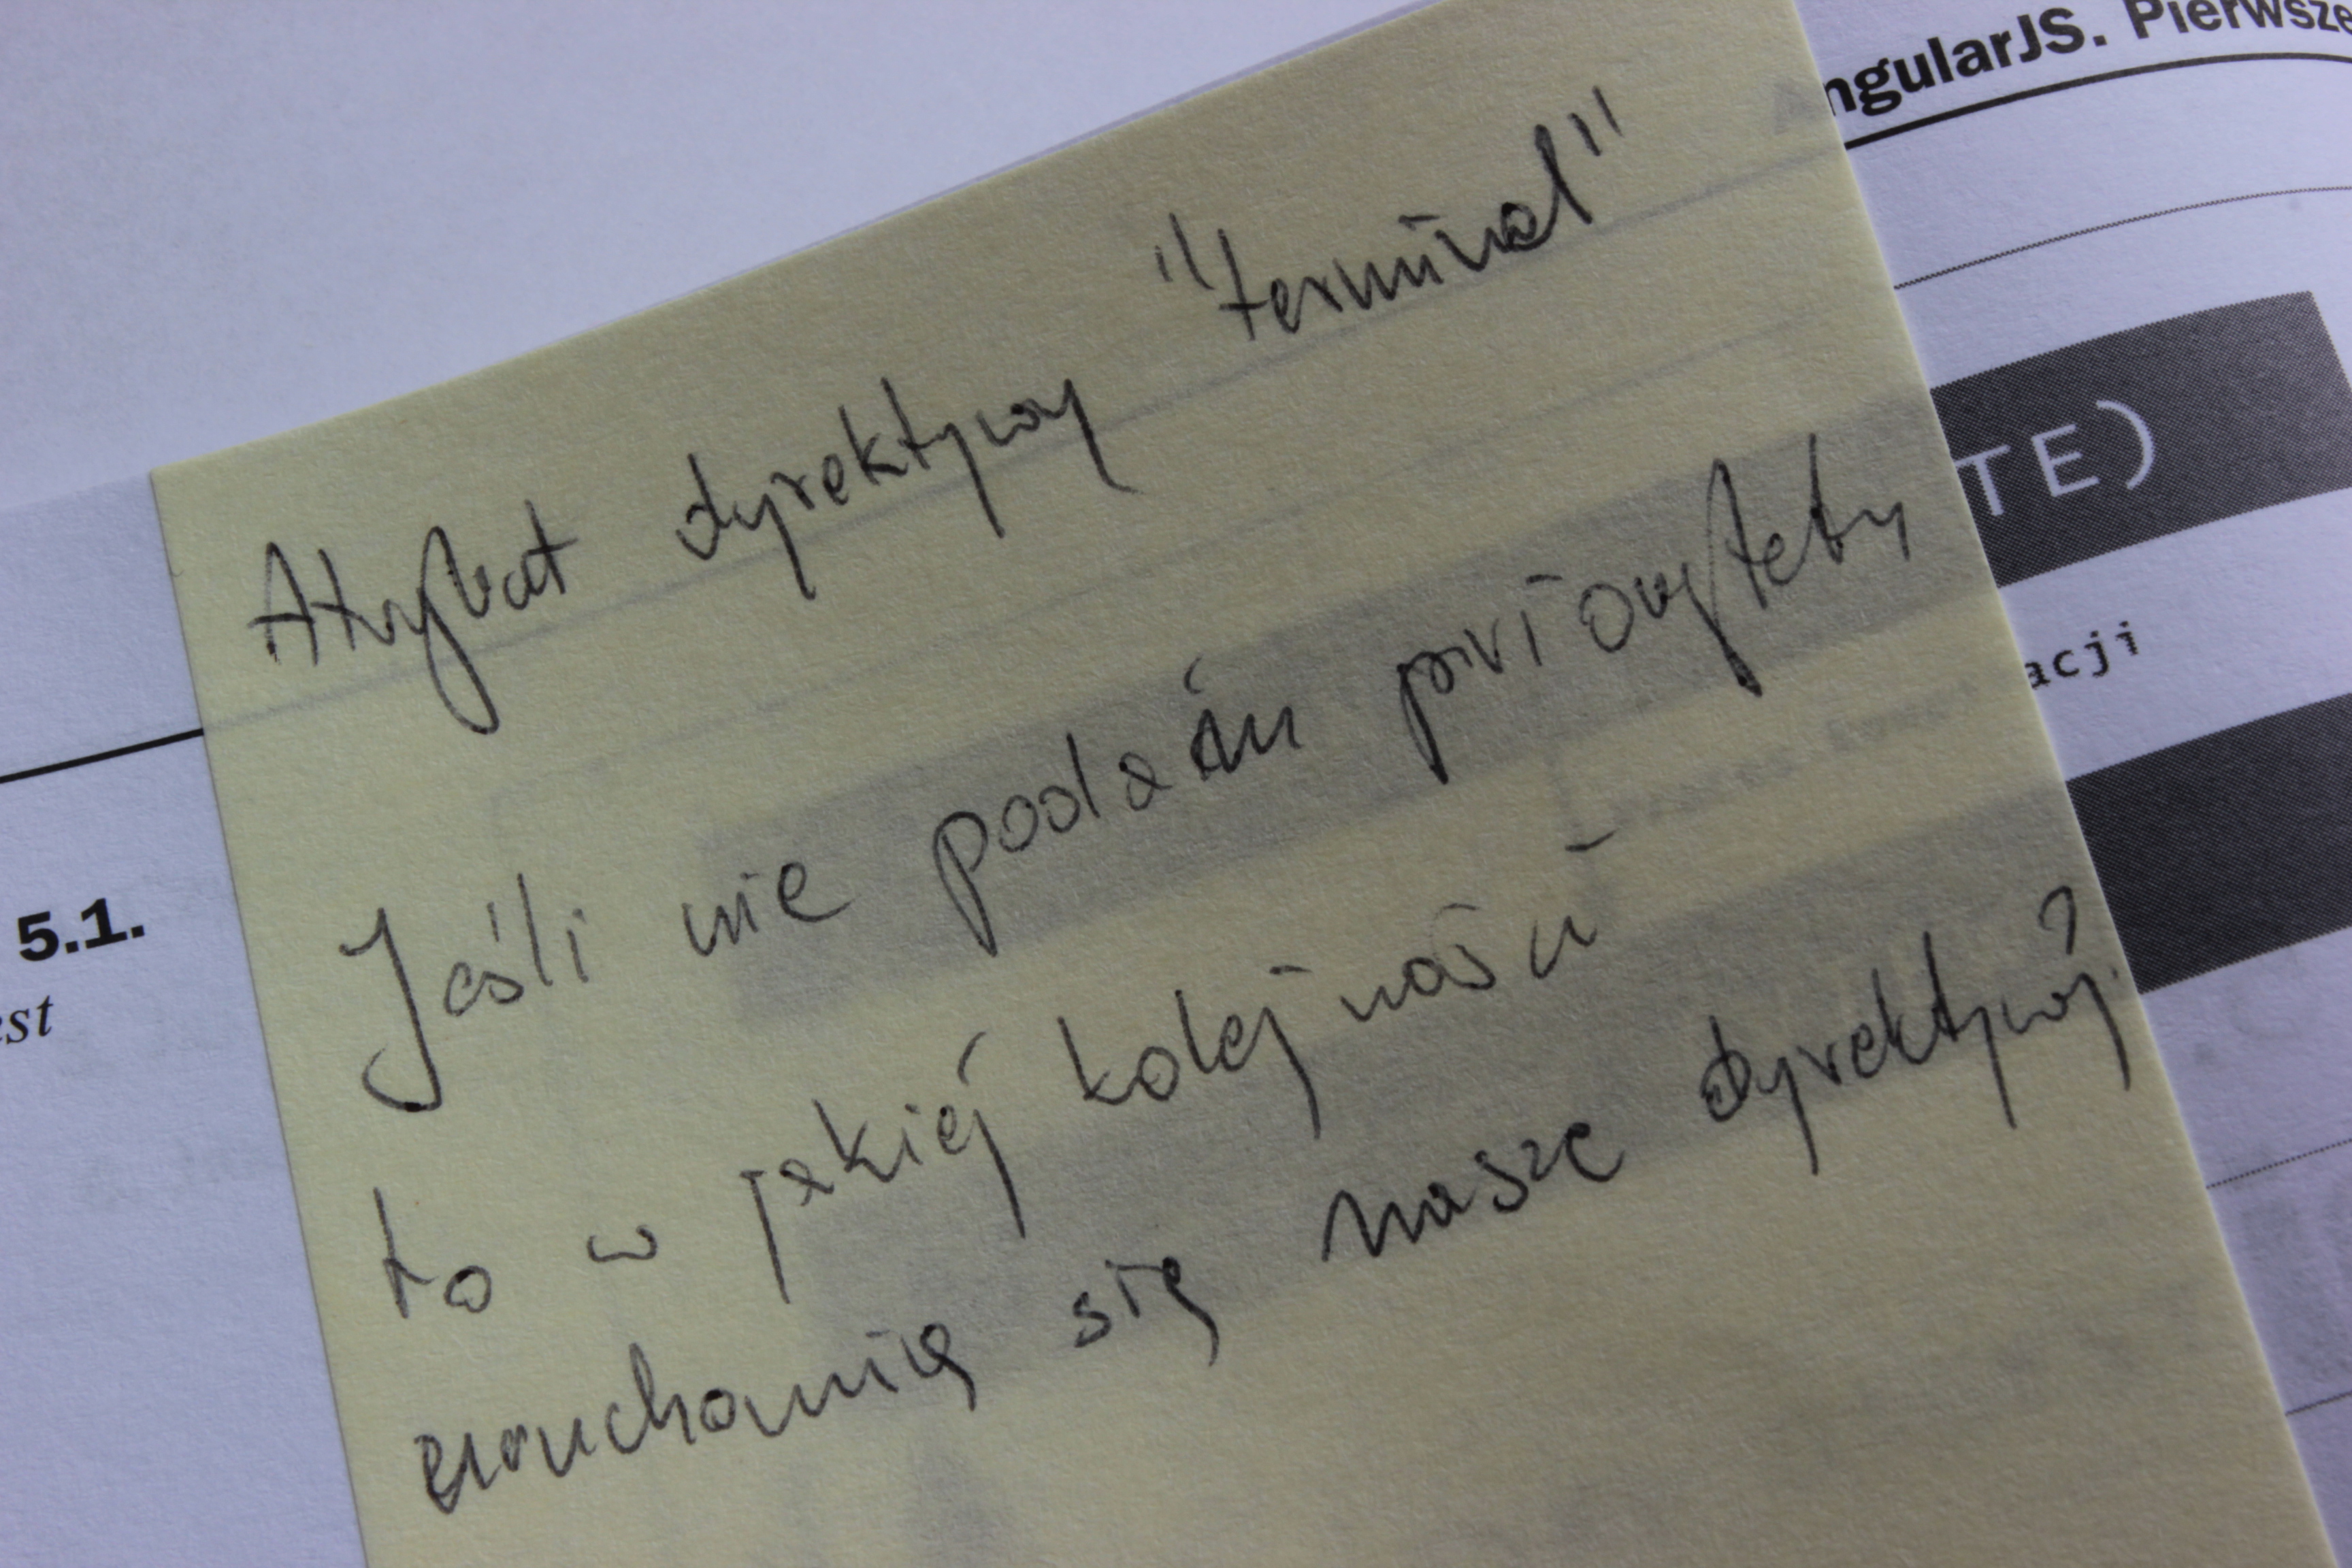 ngularJS. Pierwsze
Atrybut dyrektywy "terminal"
TE)
Jeśli nie podam priorytetu
acji
to w jakiej kolejności
uruchomią się nasze dyrektywy?
5.1.
est